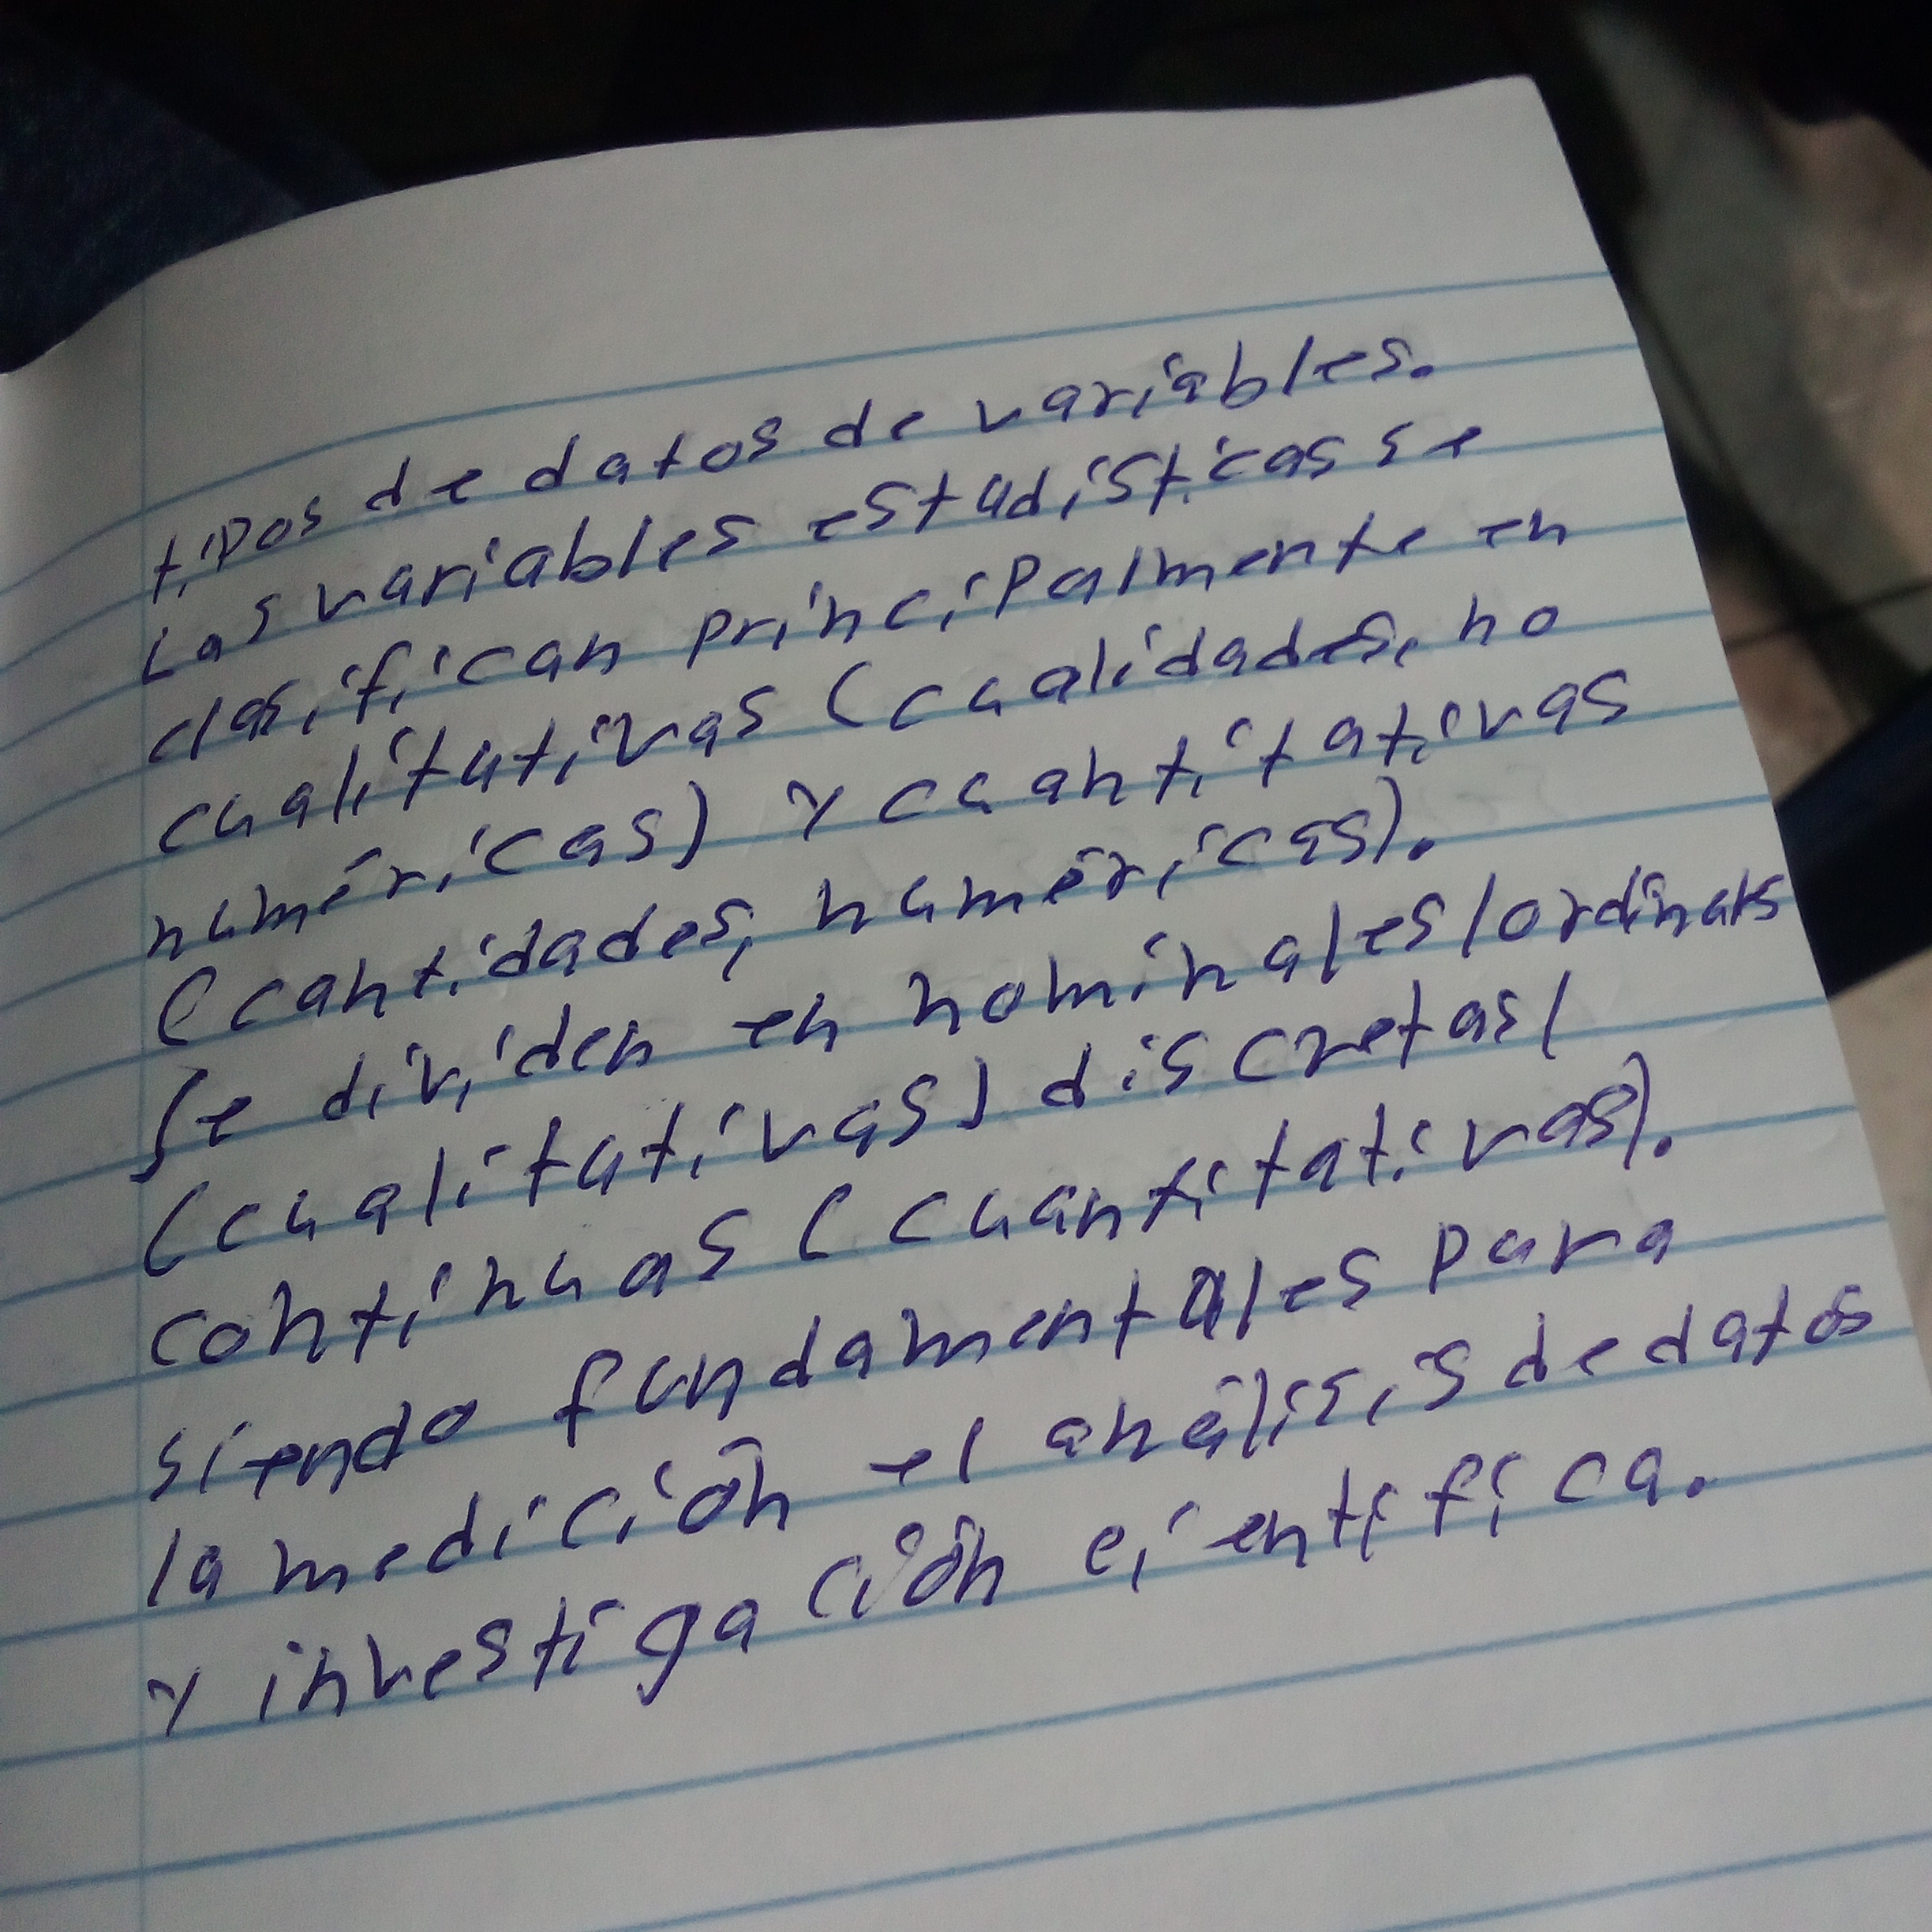 tipos de datos de variables.
Las variables estadisticas se
clasifican principalmente en
cualitativas (cualidades, no
numéricas) y cuantitativas
(cantidades, numéricas).
Se dividen en nominales/ordinales
(cualitativas) discretas/
continuas (cuantitativas).
siendo fundamentales para
la medición el análisis de datos
y investigación cientifica.